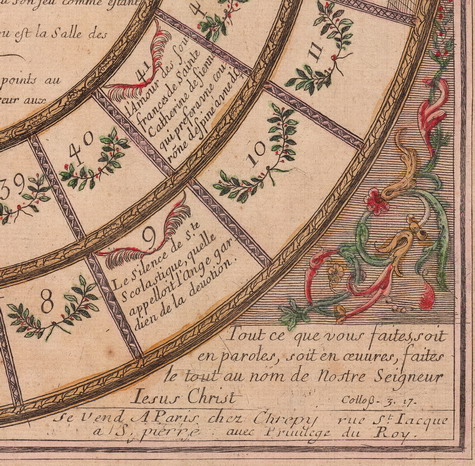 son jeu comme estant
ou est la Salle des
points au
41
Amour des Sou
frances de Sainte
Catherine de Sienne
qui prefera une cou
rône d'épines a une d'or
4
11
39
40
10
8
9
Le Silence de S.te
Scolastique, quelle
appelloit l'ange gar
dien de la devotion.
Tout ce que vous faites, soit
en paroles, soit en œuures, faites
le tout au nom de Nostre Seigneur
Iesus Christ Colloss. 3. 17.
se Vend A Paris chez Chrepy rue St. Iacque
a S. pierre auec Priuilege du Roy.